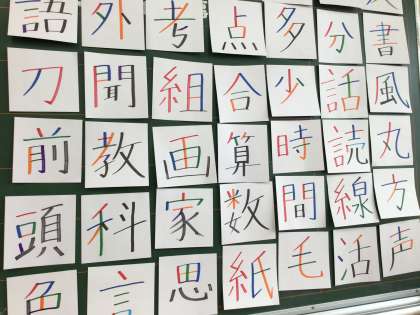 語 外 考 点 多 分 書
刀 聞 組 合 少 話 風
前 教 画 算 時 読 丸
頭 科 家 数 間 線 方
色 言 思 紙 毛 活 声